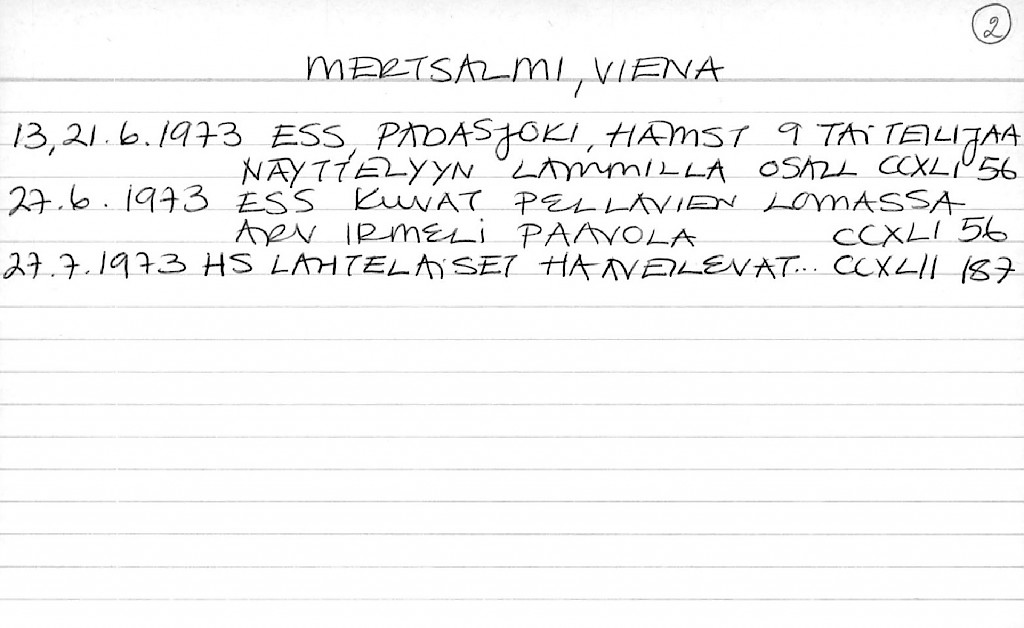 2
MERTSALMI, VIENA
13,21.6.1973 ESS, PADASJOKI, HÄMST 9 TAITEILIJAA
NÄYTTELYYN LAMMILLA OSALL CCXLI 56
27.6.1973 ESS KUVAT PELLAVIEN LOMASSA
ARV IRMELI PAAVOLA CCXLI 56
27.7.1973 HS LAHTELAISET HAAVEILEVAT... CCXLII 187